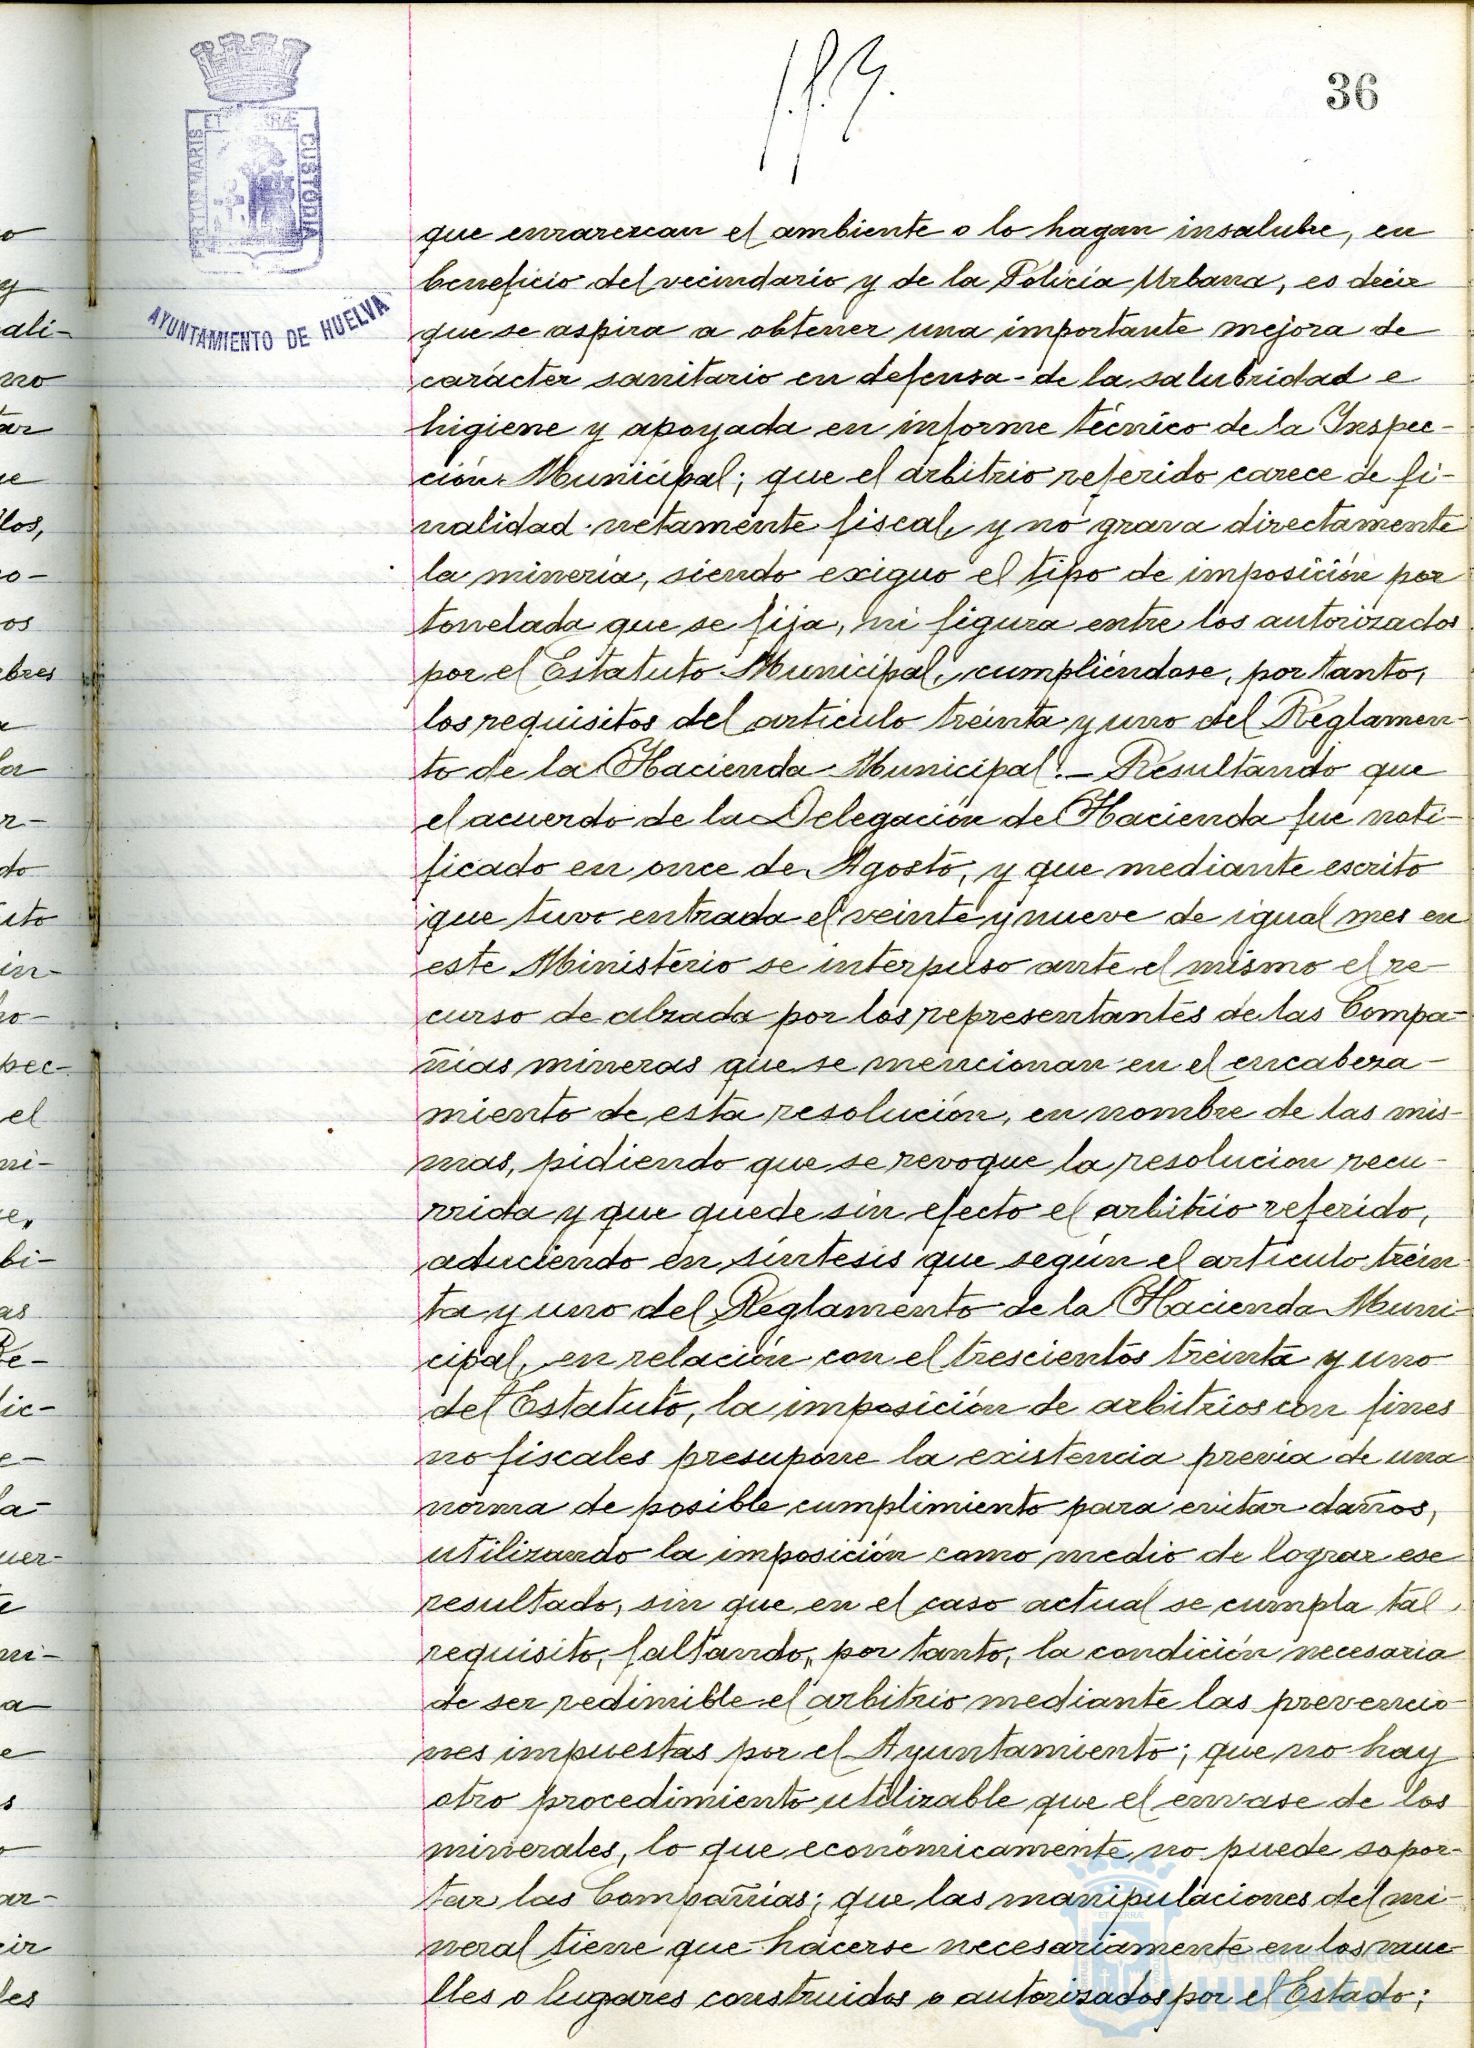 36
PORTUS MARIS ET TERRÆ CUSTODIA
AYUNTAMIENTO DE HUELVA
que enrarezcan el ambiente o lo hagan insalubre, en
beneficio del vecindario y de la Policía Urbana, es decir
que se aspira a obtener una importante mejora de
carácter sanitario en defensa de la salubridad e
higiene y apoyada en informe técnico de la Inspec-
ción Municipal; que el arbitrio referido carece de fi-
nalidad netamente fiscal, y no grava directamente
la minería, siendo exiguo el tipo de imposición por
tonelada que se fija, ni figura entre los autorizados
por el Estatuto Municipal, cumpliéndose, por tanto,
los requisitos del artículo treinta y uno del Reglamen-
to de la Hacienda Municipal.- Resultando que
el acuerdo de la Delegación de Hacienda fue noti-
ficado en once de Agosto, y que mediante escrito
que tuvo entrada el veinte y nueve de igual mes en
este Ministerio se interpuso ante el mismo el re-
curso de alzada por los representantes de las Compa-
ñías mineras que se mencionan en el encabeza-
miento de esta resolución, en nombre de las mis-
mas, pidiendo que se revoque la resolucion recu-
rrida y que quede sin efecto el arbitrio referido,
aduciendo en síntesis que según el artículo trein-
ta y uno del Reglamento de la Hacienda Muni-
cipal, en relación con el trescientos treinta y uno
del Estatuto, la imposición de arbitrios con fines
no fiscales presupone la existencia previa de una
norma de posible cumplimiento para evitar daños,
utilizando la imposición como medio de lograr ese
resultado, sin que en el caso actual se cumpla tal
requisito, faltando, por tanto, la condición necesaria
de ser redimible el arbitrio mediante las prevencio-
nes impuestas por el Ayuntamiento; que no hay
otro procedimiento utilizable que el envase de los
minerales, lo que económicamente no puede sopor-
tar las Compañías; que las manipulaciones del mi-
neral tiene que hacerse necesariamente en los mue-
lles o lugares construidos o autorizados por el Estado;
Ayuntamiento de
HUELVA